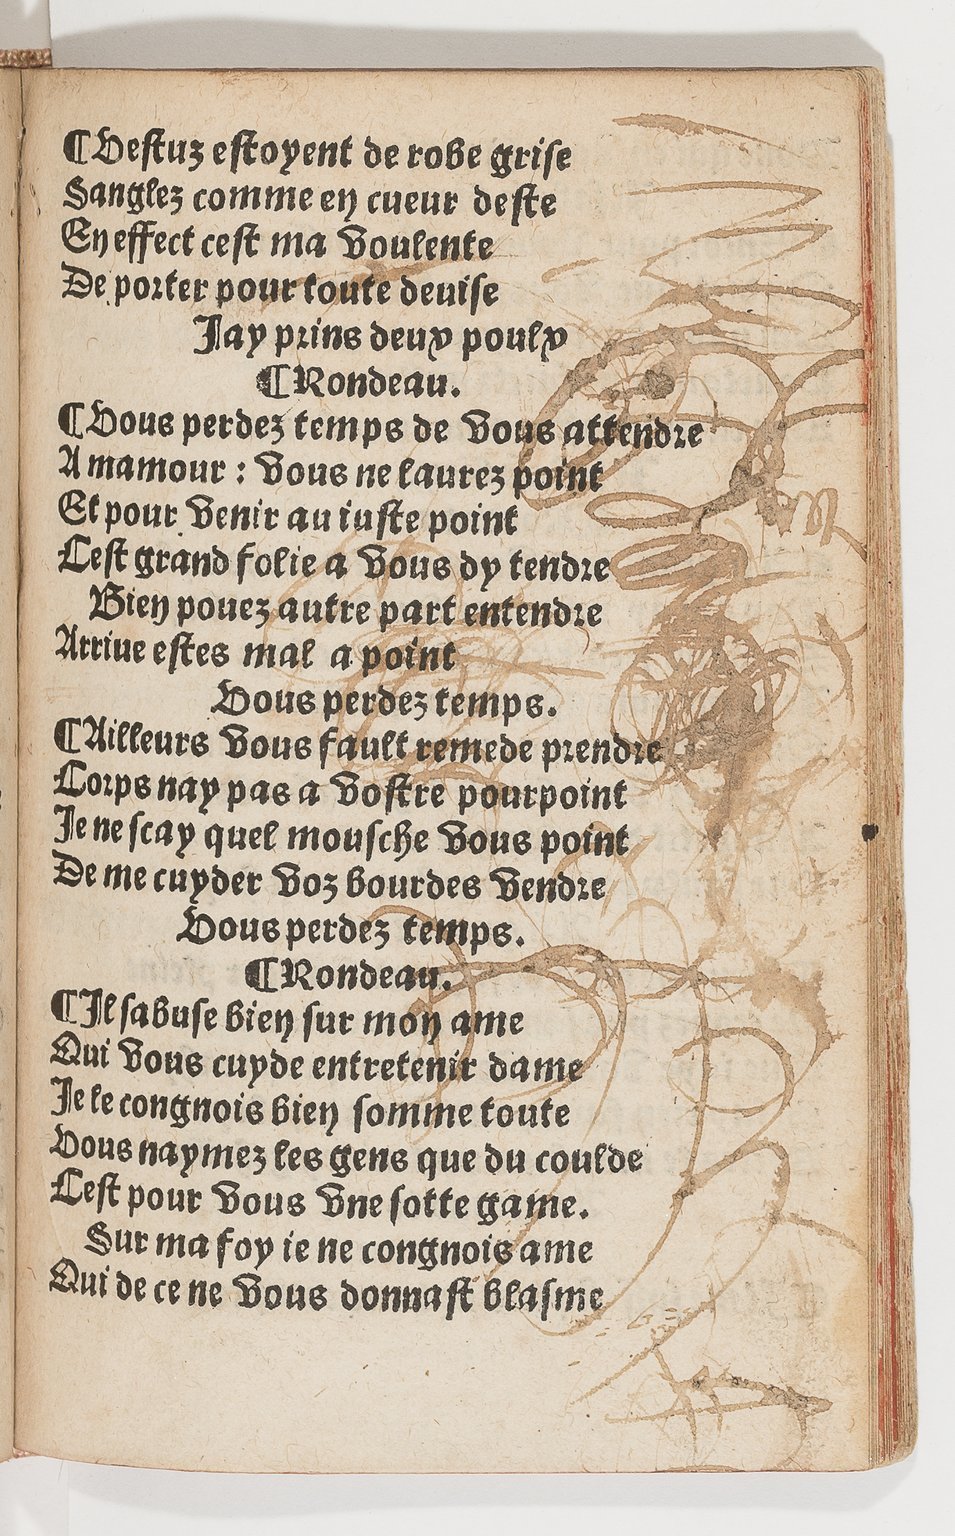 ¶Vestuz estoyent de robe grise
Sanglez comme en cueur deste
En effect cest ma voulente
De porter pour toute deuise
Jay prins deux poulx
¶Rondeau.
¶Vous perdez temps de vous attendre
A mamour : vous ne laurez point
Et pour venir au iuste point
Cest grand folie a vous dy tendre
Bien pouez autre part entendre
Arriue estes mal a point
Vous perdez temps.
¶Ailleurs vous fault remede prendre
Corps nay pas a vostre pourpoint
Je ne scay quel mousche vous point
De me cuyder voz bourdes vendre
Vous perdez temps.
¶Rondeau.
¶Il sabuse bien sur mon ame
Qui vous cuyde entretenir dame
Je le congnois bien somme toute
Vous naymez les gens que du coulde
Cest pour vous vne sotte game.
Sur ma foy ie ne congnois ame
Qui de ce ne vous donnast blasme